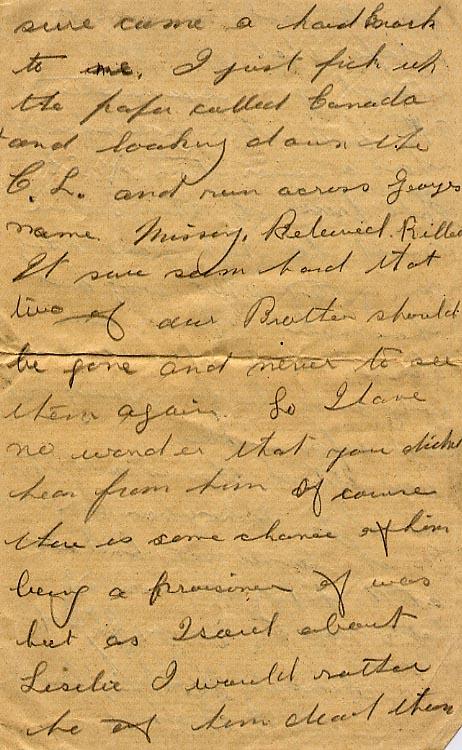 sure came a hard knock
to me. I just pick up
the paper called Canada
and looking down the
C. L. and run across Georges
name Missing, Beleived Killed
It sure seem hard that
two of our Brother should
be gone and never to see
them again. So I have
no wonder that you didnt
hear from him Of course
there is some chance of him
being a prisoner of was
but as I said about
Leslie I would rather
he of him dead then